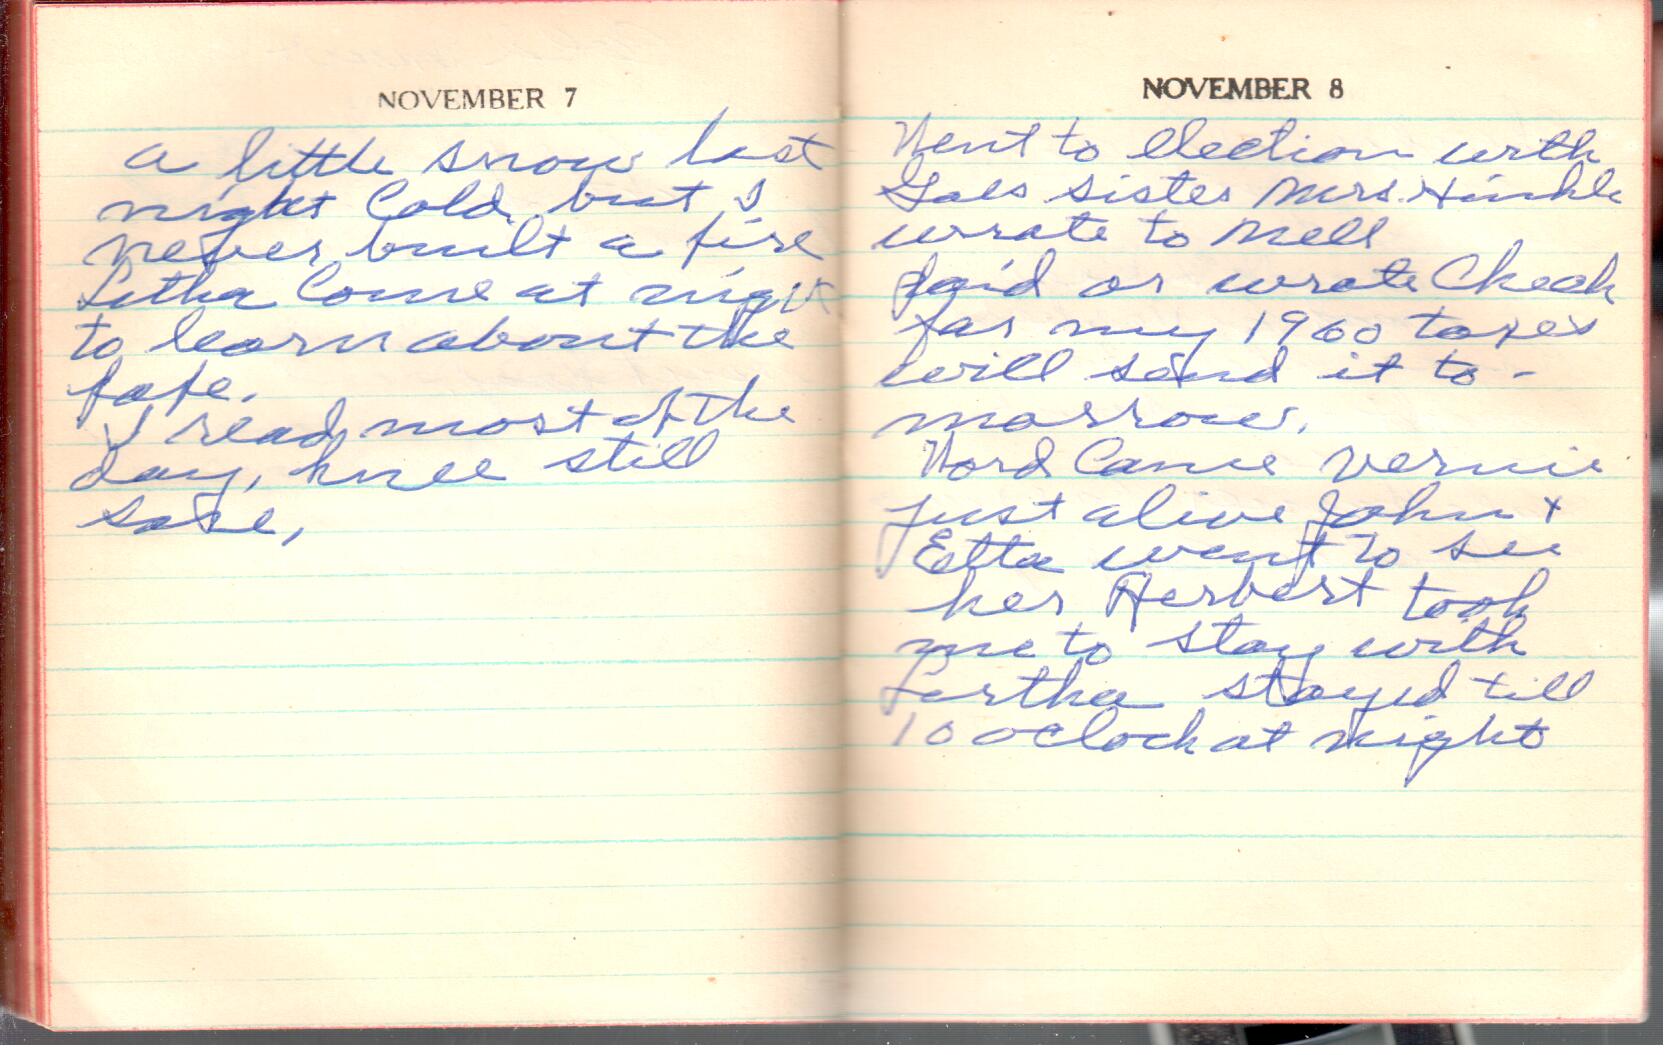 NOVEMBER 7
a little snow last
night Cold but I
never built a fire
Letha Come at night
to learn about the
pope.
I read most of the
day, knee still
sore,
NOVEMBER 8
Went to election with
sister Mrs. Hinkle
wrote to Mell
paid or wrote Check
for my 1960 taxes
will send it to-
morrow.
Word Came Vernie
just alive John +
Etta went to see
her Herbert took
me to stay with
stayed till
10 oclock at night